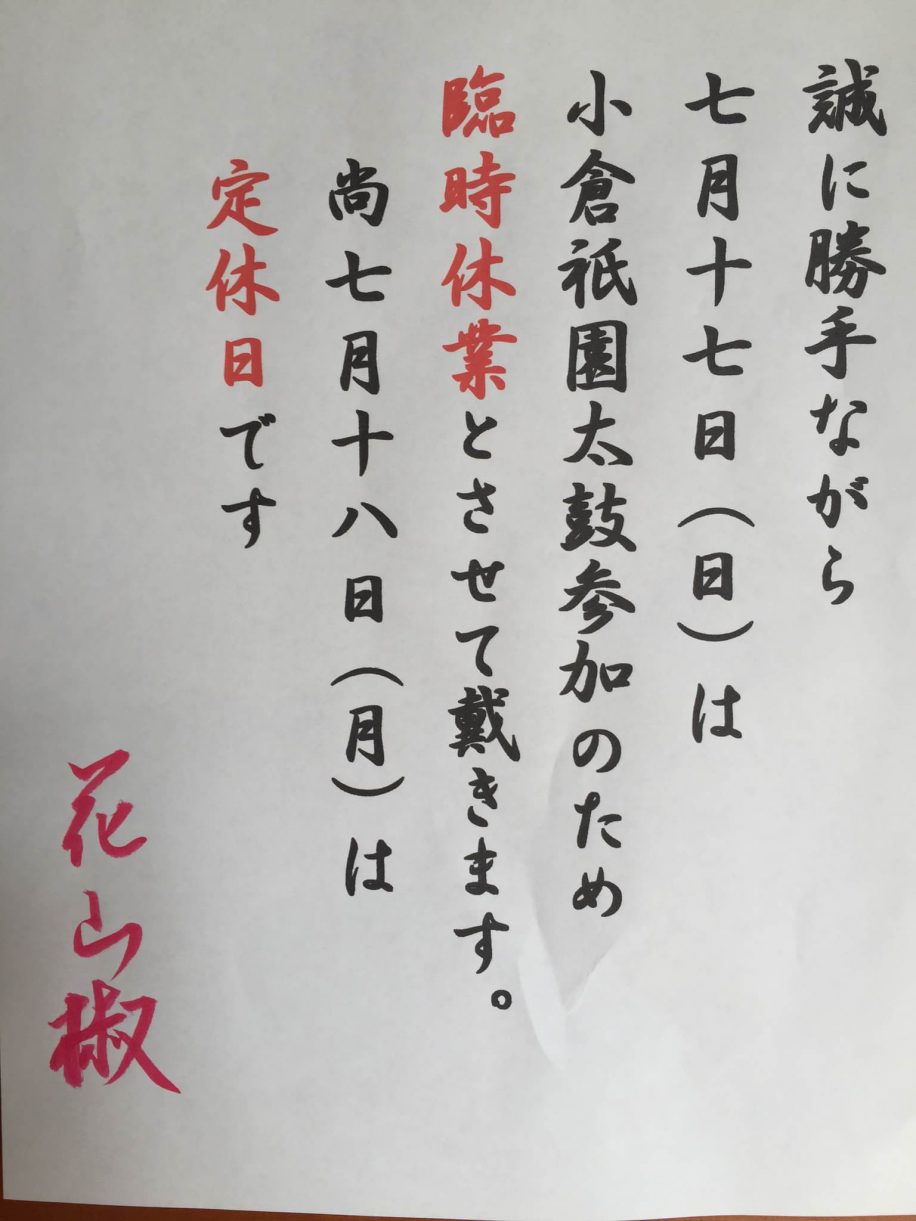 誠に勝手ながら
七月十七日（日）は
小倉祇園太鼓参加のため
臨時休業とさせて戴きます。
尚七月十八日（月）は
定休日です
花山椒